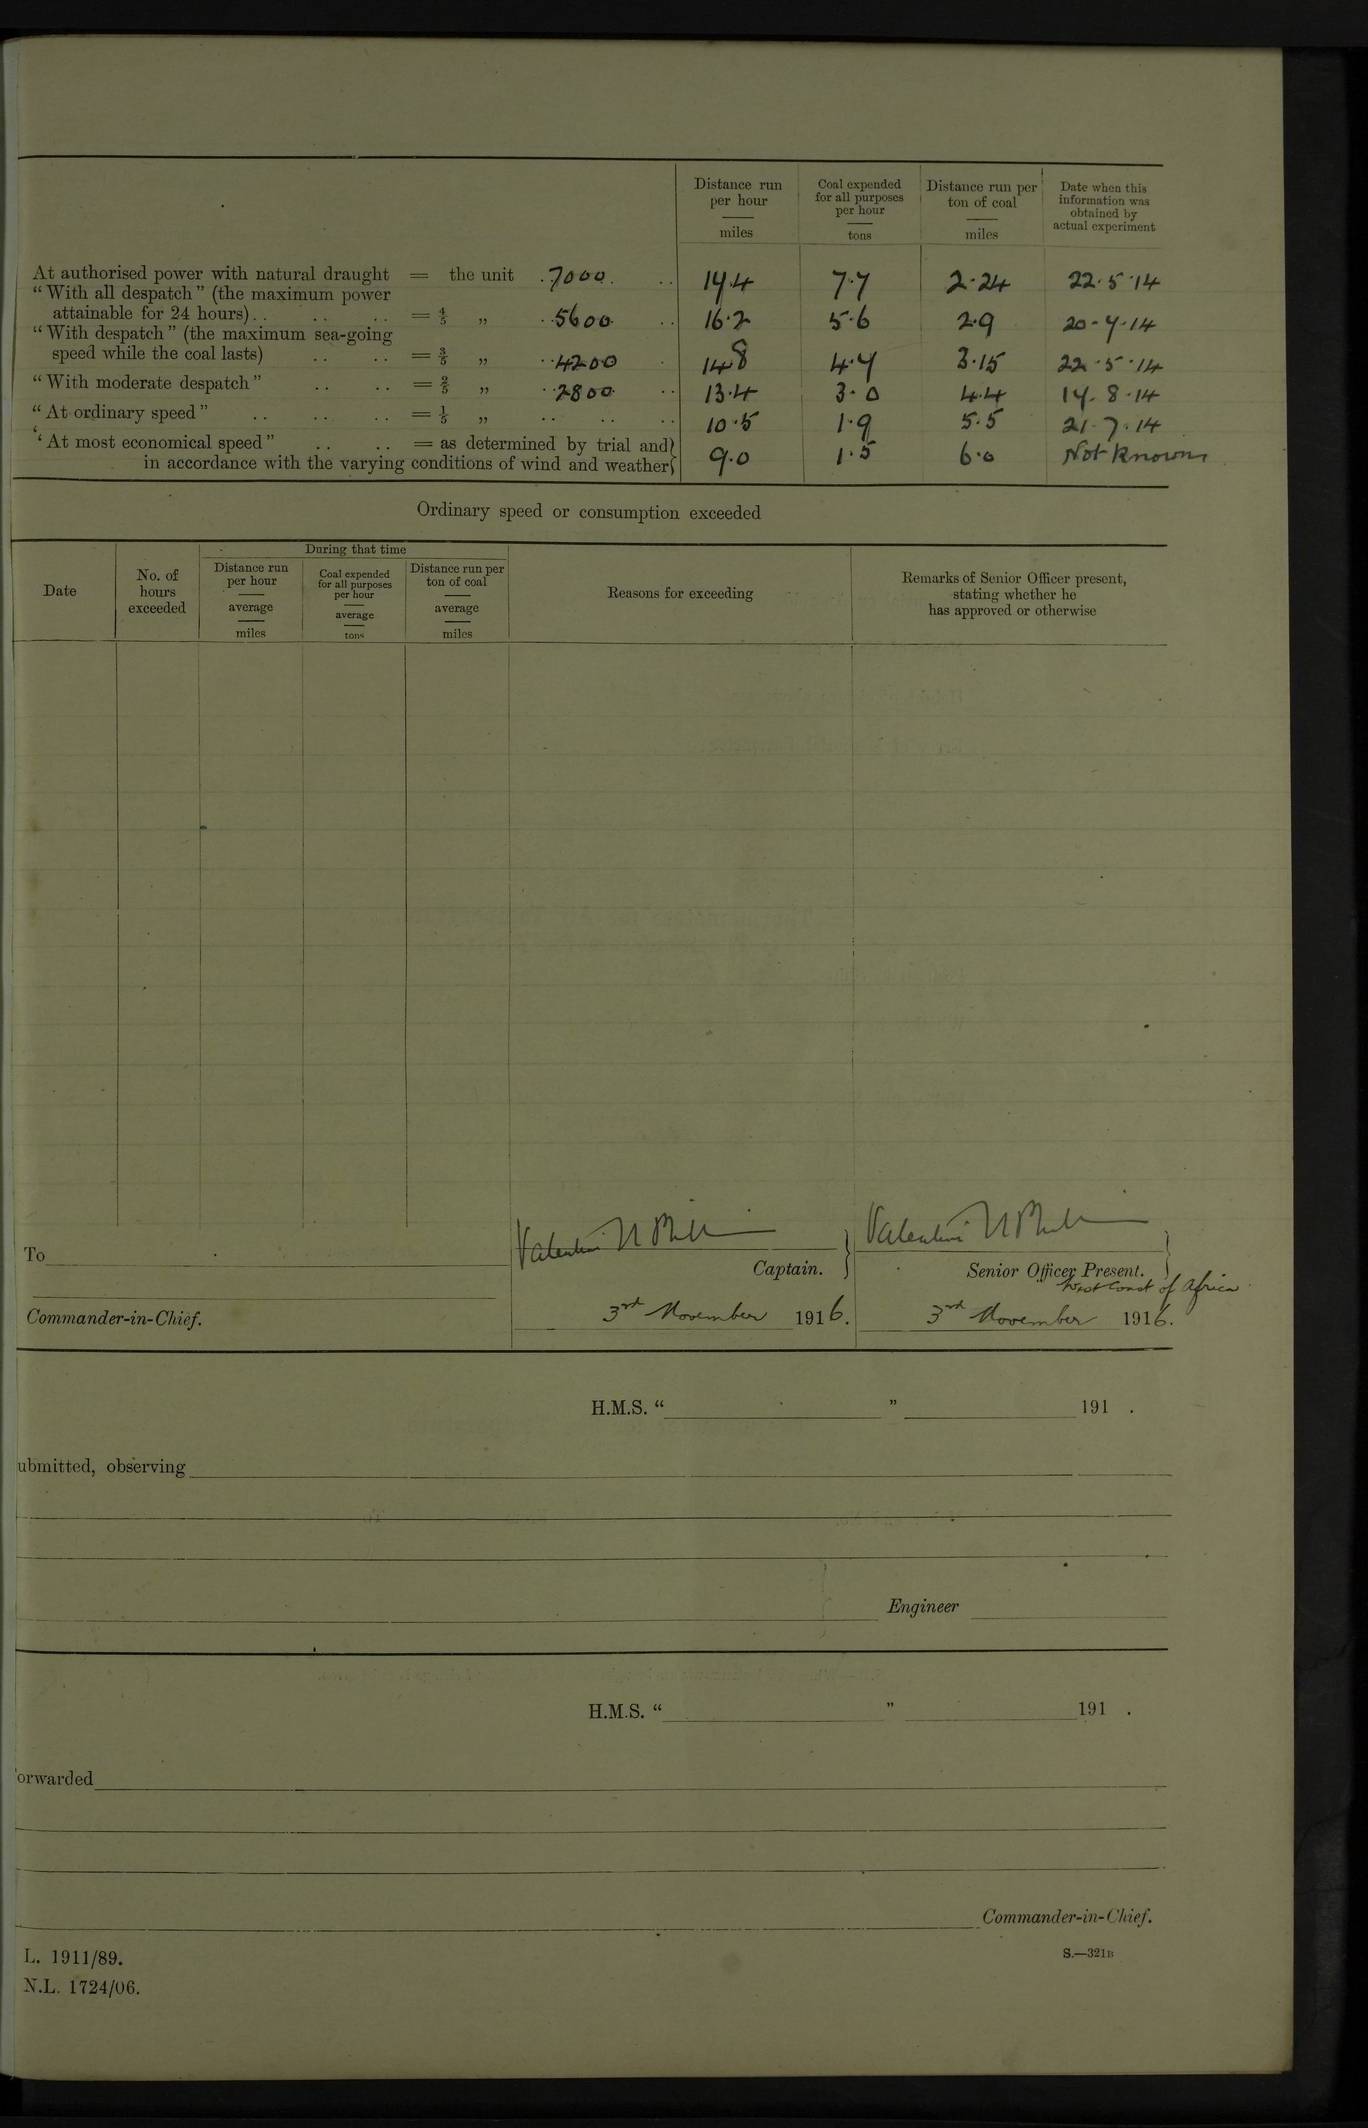 Distance run per hour
miles
Coal expended for all purposes per hour
tons
Distance run per ton of coal
miles
Date when this information was obtained by actual experiment
At authorised power with natural draught = the unit . 7000 . .. 17.4 7.7 2.24 22.5.14
“With all despatch” (the maximum power
attainable for 24 hours) .. .. .. = 4/5 „ .. 5600 .. 16.2 5.6 2.9 20-7-14
“With despatch” (the maximum sea-going
speed while the coal lasts) .. .. = 3/5 „ .. 4200 . 14.8 4.7 3.15 22.5.14
“With moderate despatch” .. .. = 2/5 „ .. 2800 .. 13.4 3.0 4.4 17.8.14
“At ordinary speed” .. .. .. = 1/5 „ .. .. .. 10.5 1.9 5.5 21.7.14
“At most economical speed” .. .. = as determined by trial and
in accordance with the varying conditions of wind and weather 9.0 1.5 6.0 Not Known
Ordinary speed or consumption exceeded
Date
No. of hours exceeded
During that time
Distance run per hour
average
miles
Coal expended for all purposes per hour
average
tons
Distance run per ton of coal
average
miles
Reasons for exceeding
Remarks of Senior Officer present,
stating whether he
has approved or otherwise
To
Valentine
Captain.
Valentine
Senior Officer Present.
West Coast of Africa
Commander-in-Chief.
3rd November 1916.
3rd November 1916.
H.M.S. “ ” 191 .
ubmitted, observing
Engineer
H.M.S. “ ” 191 .
orwarded
Commander-in-Chief.
L. 1911/89.
S.—321B
N.L. 1724/06.